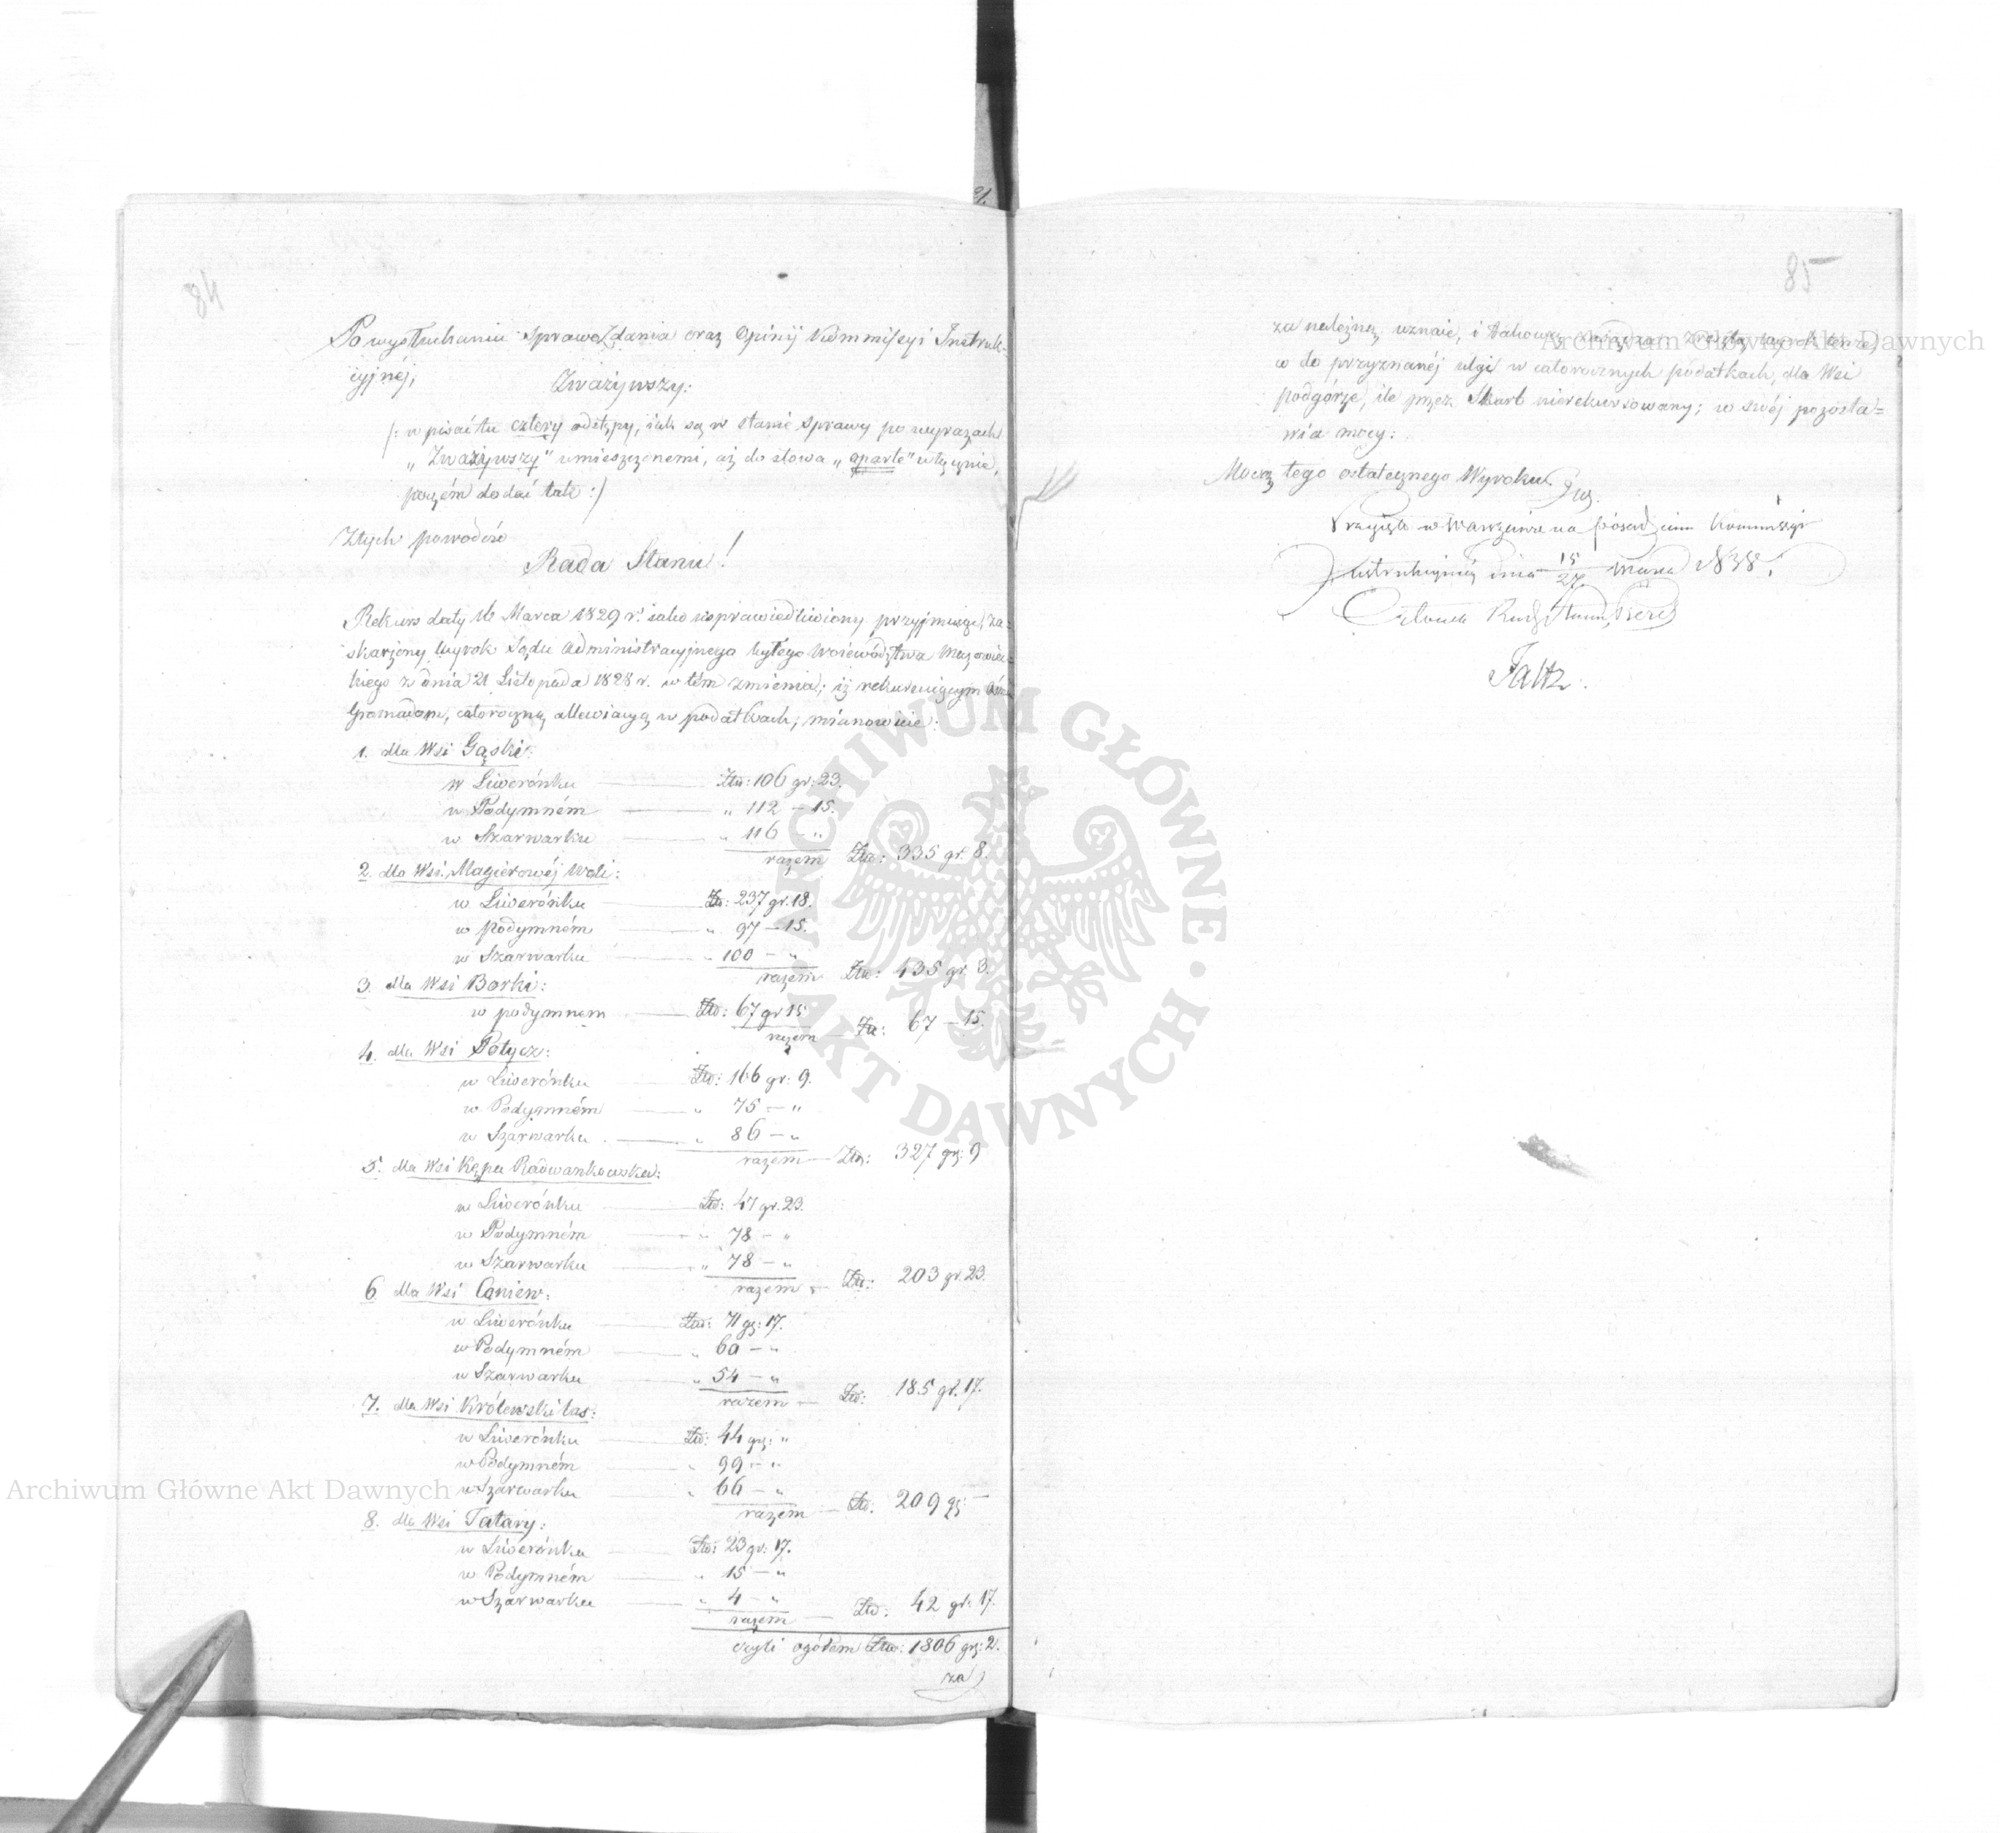 84
Po wysłuchaniu Sprawozdania oraz Opinij Kommissyi Instruk-
cyjnéj,
Zważywszy:
/: w pisać tu cztery odstępy, jak są w stanie sprawy po wyrazach
„Zważywszy" umieszczonemi, aż do słowa „oparte" włącznie,
poczém dodać tak :/
Z tych powodów
Rada Stanu!
Rekurs daty 16 Marca 1829 r. jako usprawiedliwiony przyjmując, za-
skarżony wyrok Sądu Administracyjnego byłego Województwa Mazowiec-
kiego z dnia 21 Listopada 1828 r. w tém zmienia; iż rekurującym
Gromadom, całoroczną allewiacyą w podatkach, mianowicie:
1. dla Wsi Gąski:
w Liwerónku — Złtp: 106 gr: 23.
w Podymném — „ 112 – 15.
w Szarwarku — „ 116 – „
razem Złp: 335 gr. 8.
2. dla Wsi Magierowéj Woli:
w Liwerónku — Zł: 237 gr. 18.
w podymném — „ 97 – 15.
w Szarwarku — „ 100 – „
razem Złp: 435 gr. 3.
3. dla Wsi Borki:
w podymnem — Złp: 67 gr 15
razem — Złp: 67 – 15.
4. dla Wsi Potycz:
w Liwerónku — Złp: 166 gr: 9.
w Podymném — „ 75 – „
w Szarwarku — „ 86 – „
razem — Złp: 327 gr: 9
5. dla Wsi Kępa Radwankowska:
w Liwerónku — Złp: 47 gr. 23.
w Podymném — „ 78 – „
w Szarwarku — „ 78 – „
razem — Złp: 203 gr. 23.
6 dla Wsi Coniew:
w Liwerónku — Złp: 71 gr: 17.
w Podymném — „ 60 – „
w Szarwarku — „ 54 – „
razem — Złp: 185 gr. 17.
7. dla Wsi Królewski las:
w Liwerónku — Złp: 44 gr: „
w Podymném — „ 99 – „
w Szarwarku — „ 66 – „
razem — Złp. 209 gr –
8. dla Wsi Tatary:
w Liwerónku — Złp: 23 gr: 17.
w Podymném — „ 15 – „
w Szarwarku — „ 4 – „
razem — Złp: 42 gr. 17.
czyli ogółem Złtp: 1806 gr: 2.
za
85
za należną uznaie, i takową
co do przyznanéj ulgi w całorocznych podatkach, dla Wsi
podgórze, ile przez Skarb nierekursowany; w swéj pozosta-
wia mocy:
Mocą tego ostatecznego Wyroku.
Przyjęto w Warszawie na posiedzeniu Kommissyi
Instrukcyjnéj dnia 15/27 Marca 1838.
Członek Rady Stanu,
Faltz.
Archiwum Główne Akt Dawnych
Archiwum Główne Akt Dawnych
ARCHIWUM GŁÓWNE · AKT DAWNYCH ·